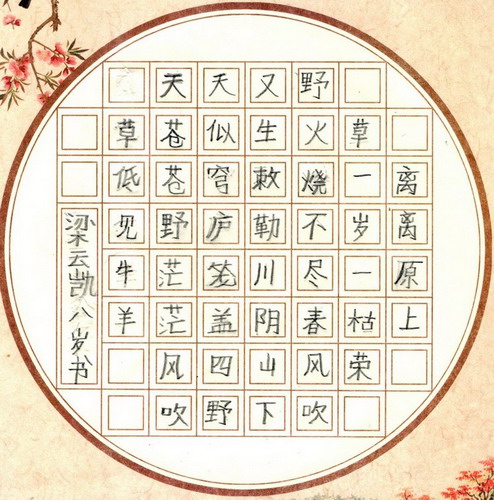 离离原上
草一岁一枯荣
野火烧不尽春风吹
又生敕勒川阴山下
天似穹庐笼盖四野
天苍苍野茫茫风吹
草低见牛羊
梁云凯八岁书